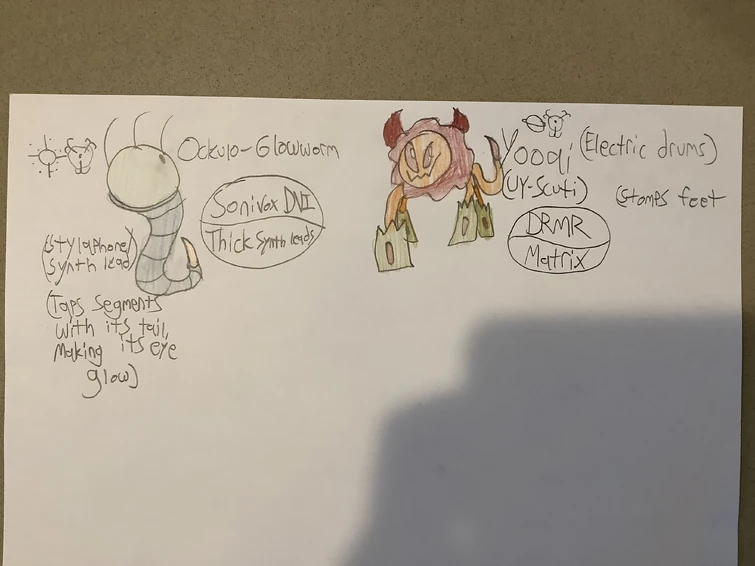 Ockulo-Glowworm
Sonivox DVI
Thick Synth leads
(Stylophone/
Synth lead)
(Taps segments
with its tail,
Making its eye
glow)
Yooqi (Electric drums)
(UY-Scuti)
(Stomps feet
DRMR
Matrix